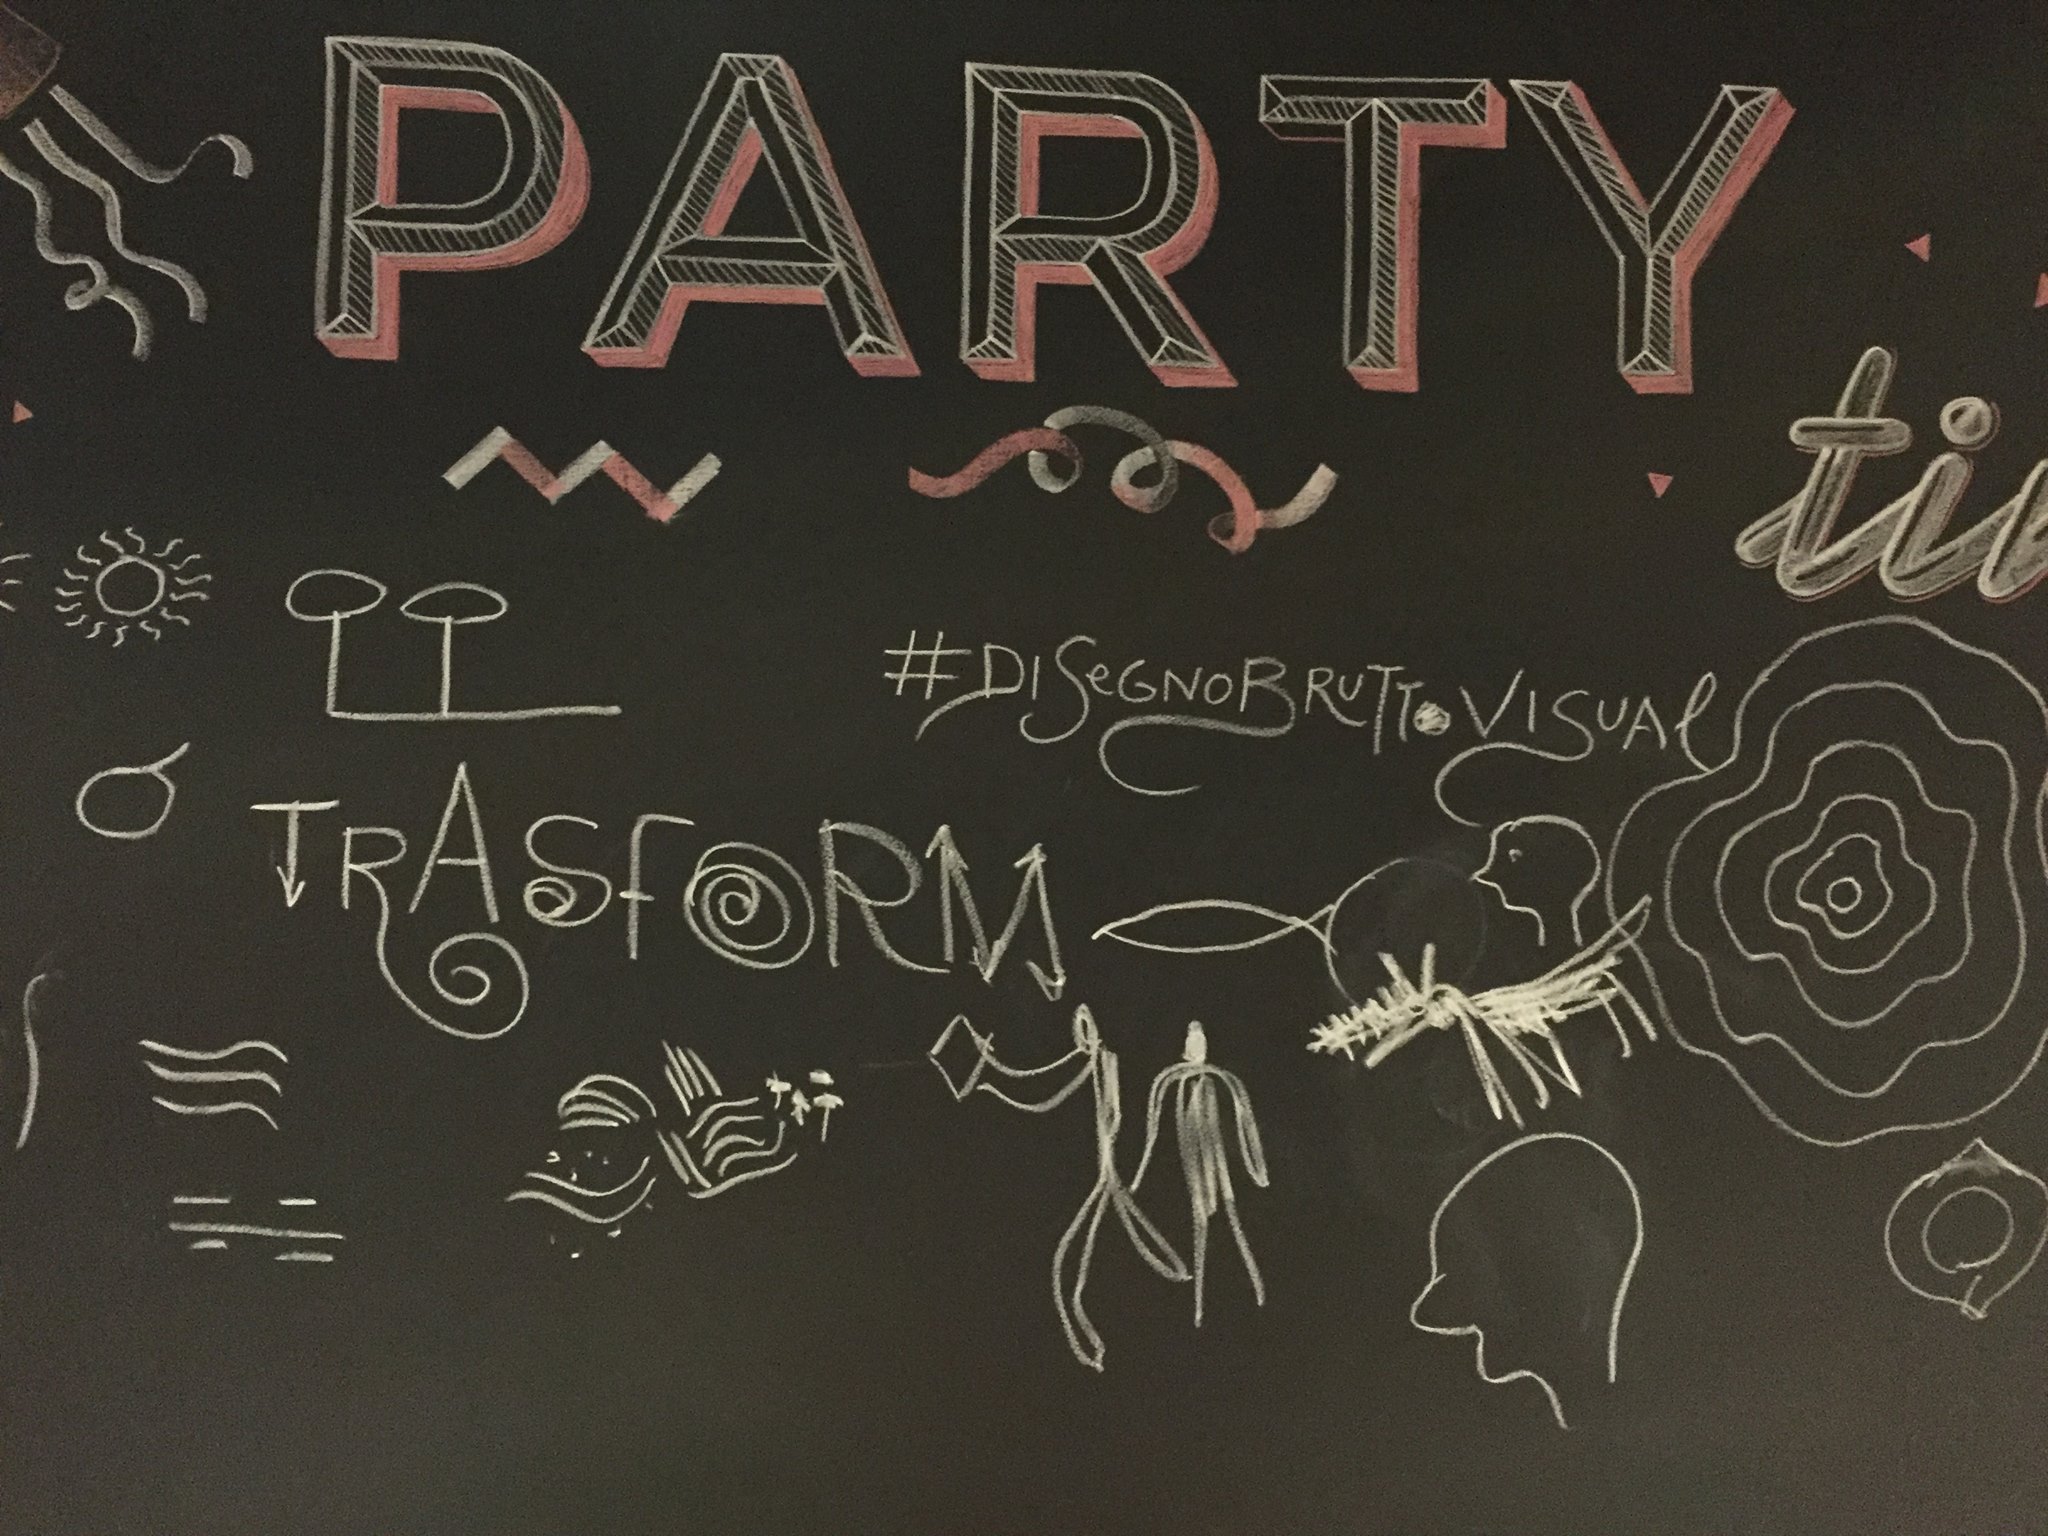 PARTY
ti
#DISeGNOBRUTToVISUAl
TRASFORM